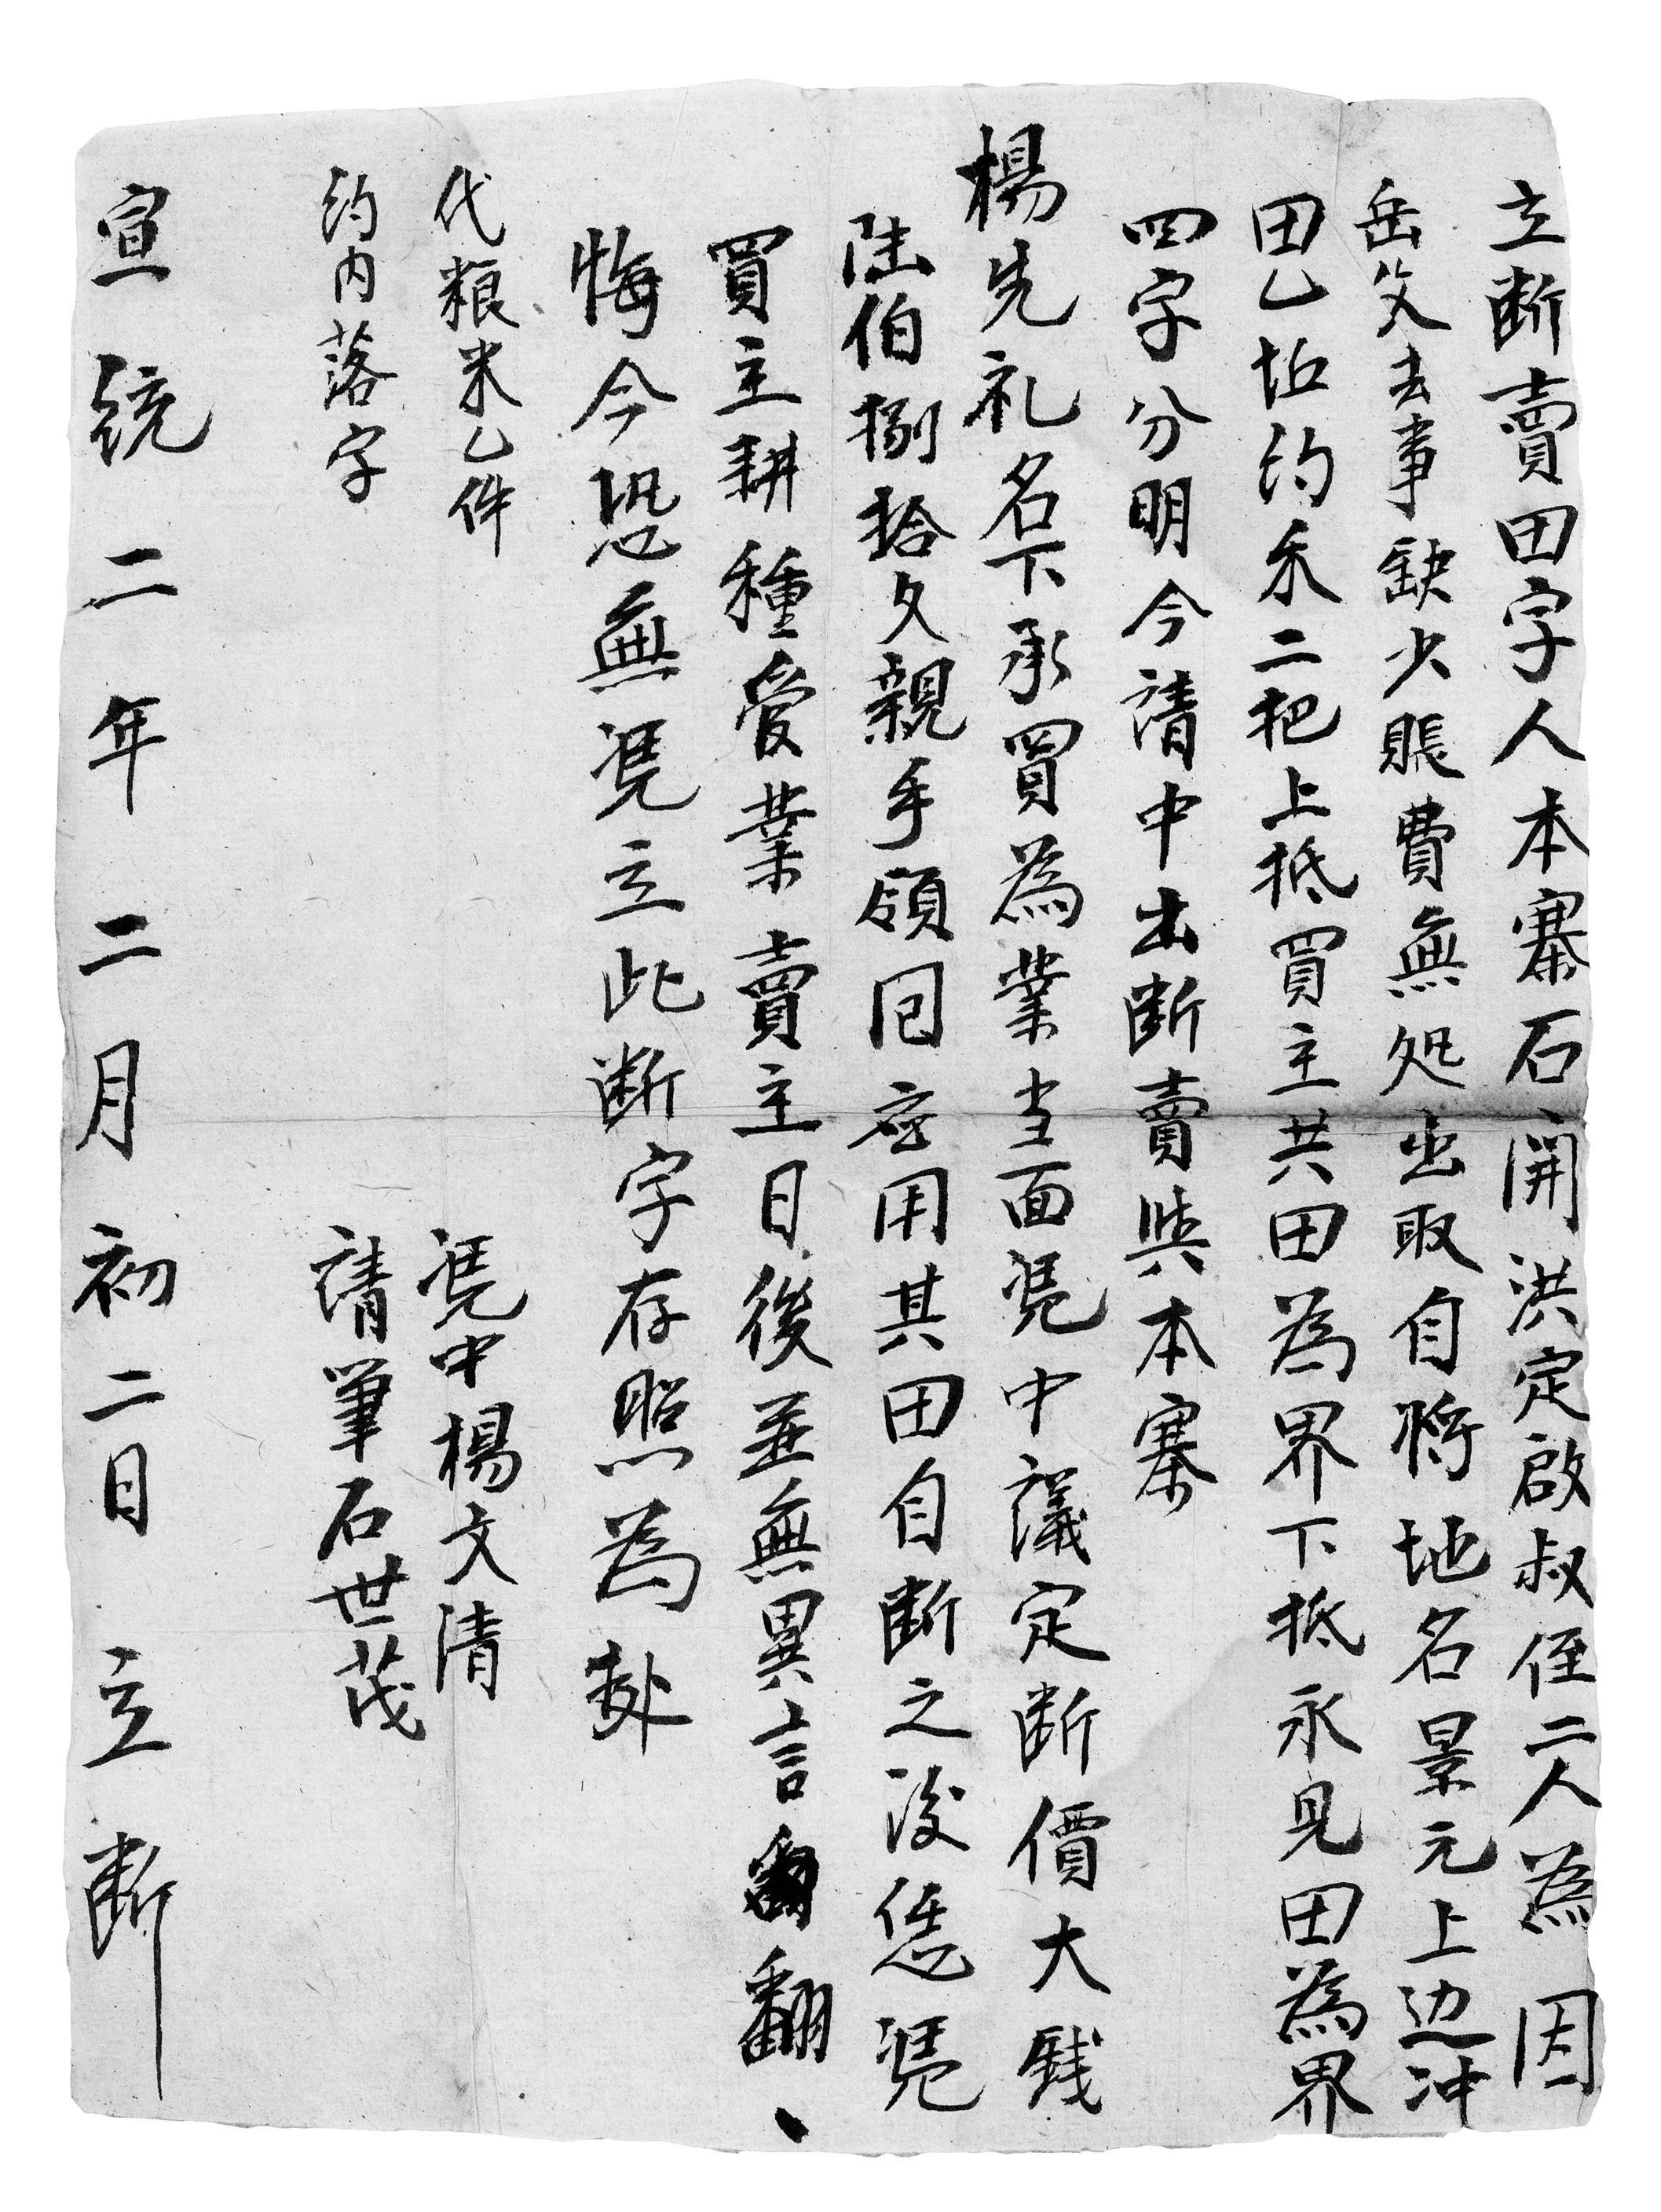 立断賣田字人本寨石開洪定啟叔侄二人為因
岳父去事缺少賬費無処出取自将地名景元上边冲
田乙坵約禾二把上抵買主共田為界下抵永見田為界
四字分明今請中出断賣與本寨
楊先礼名下承買為業当面凴中議定断價大銭
陆伯捌拾文親手領囘应用其田自断之後恁凴
買主耕種管業賣主日後並無異言翻
悔今恐無凴立此断字存照為㨿
代粮米乙件
約内落字
凴中楊文清
請筆石世茂
宣統二年二月初二日立断